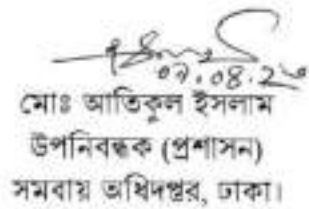 ০৭.০৪.২৬
মোঃ আতিকুল ইসলাম
উপনিবন্ধক (প্রশাসন)
সমবায় অধিদপ্তর, ঢাকা।